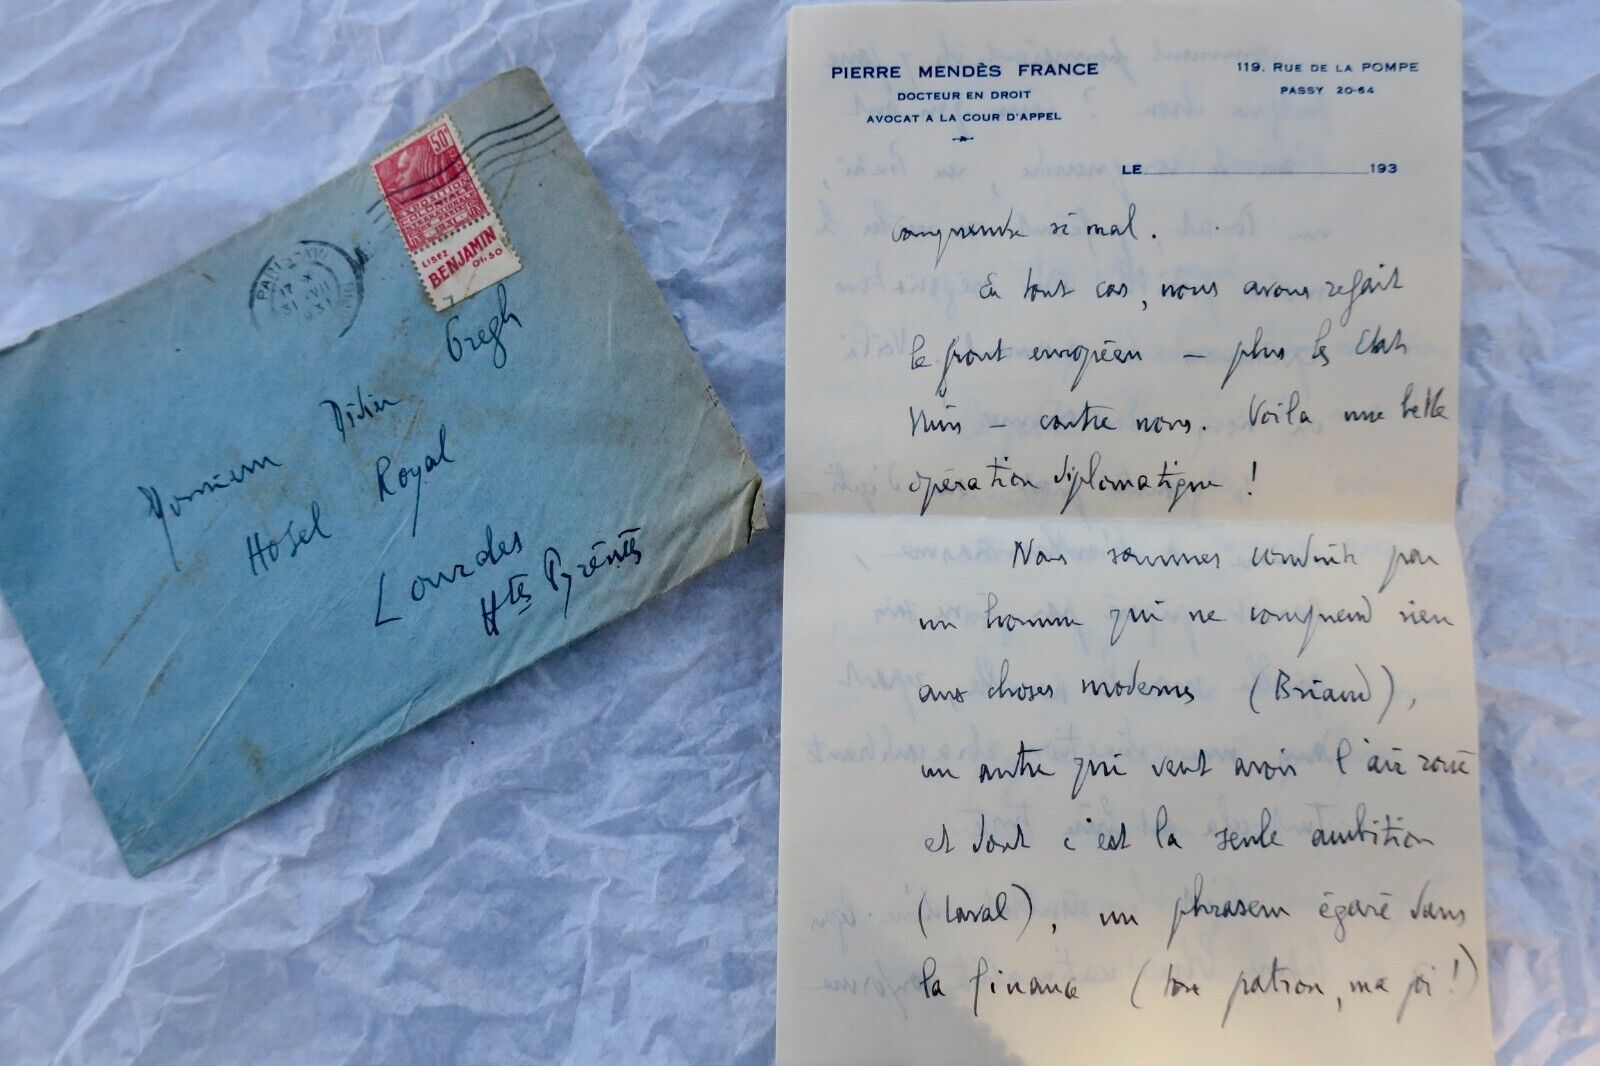 50c
EXPOSITION
COLONIALE
INTERNATIONALE
PARIS
1931
LISEZ
BENJAMIN
0f.50
PARIS
17
31 VII
Monsieur Didier Gregh
Hotel Royal
Lourdes
Htes Pyrénées
PIERRE MENDÈS FRANCE
DOCTEUR EN DROIT
AVOCAT A LA COUR D'APPEL
119, RUE DE LA POMPE
PASSY 20-64
LE 193
comprendre si mal.
En tout cas, nous avons refait
le front européen — plus les Etats
Unis — contre nous. Voila une belle
opération diplomatique !
Nous sommes conduits par
un homme qui ne comprend rien
aux choses modernes (Briand),
un autre qui veut avoir l'air roué
et dont c'est la seule ambition
(Laval), un phraseur égaré dans
la finance (ton patron, ma foi !)